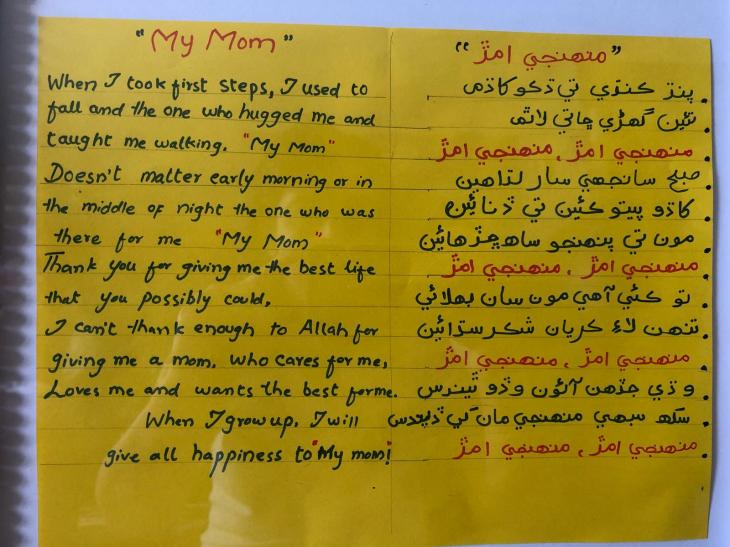 "My Mom"
When I took first steps, I used to
fall and the one who hugged me and
taught me walking. "My Mom"
Doesn't matter early morning or in
the middle of night the one who was
there for me "My Mom"
Thank you for giving me the best life
that you possibly could,
I can't thank enough to Allah for
giving me a mom, who cares for me,
Loves me and wants the best for me.
When I grow up, I will
give all happiness to "My mom!
"منهنجي امڙ"
پنڌ ڪندي تي
ڇاتي لاٿم
منهنجي امڙ، منهنجي امڙ
صبح سانجهي سار لڌاهين
کاڌو پيتو ڪئين تي ڏنائين
مون تي پنهنجو ساھ ڇڙهائين
منهنجي امڙ، منهنجي امڙ
تو ڪئي آهي مون سان ڀلائي
تنهن لاءِ ڪريان شڪر سدائين
منهنجي امڙ، منهنجي امڙ
وڏي جڏهن آئون وڏو ٿيندس
سک سڀهي منهنجي مان کي ڏيندس
منهنجي امڙ، منهنجي امڙ